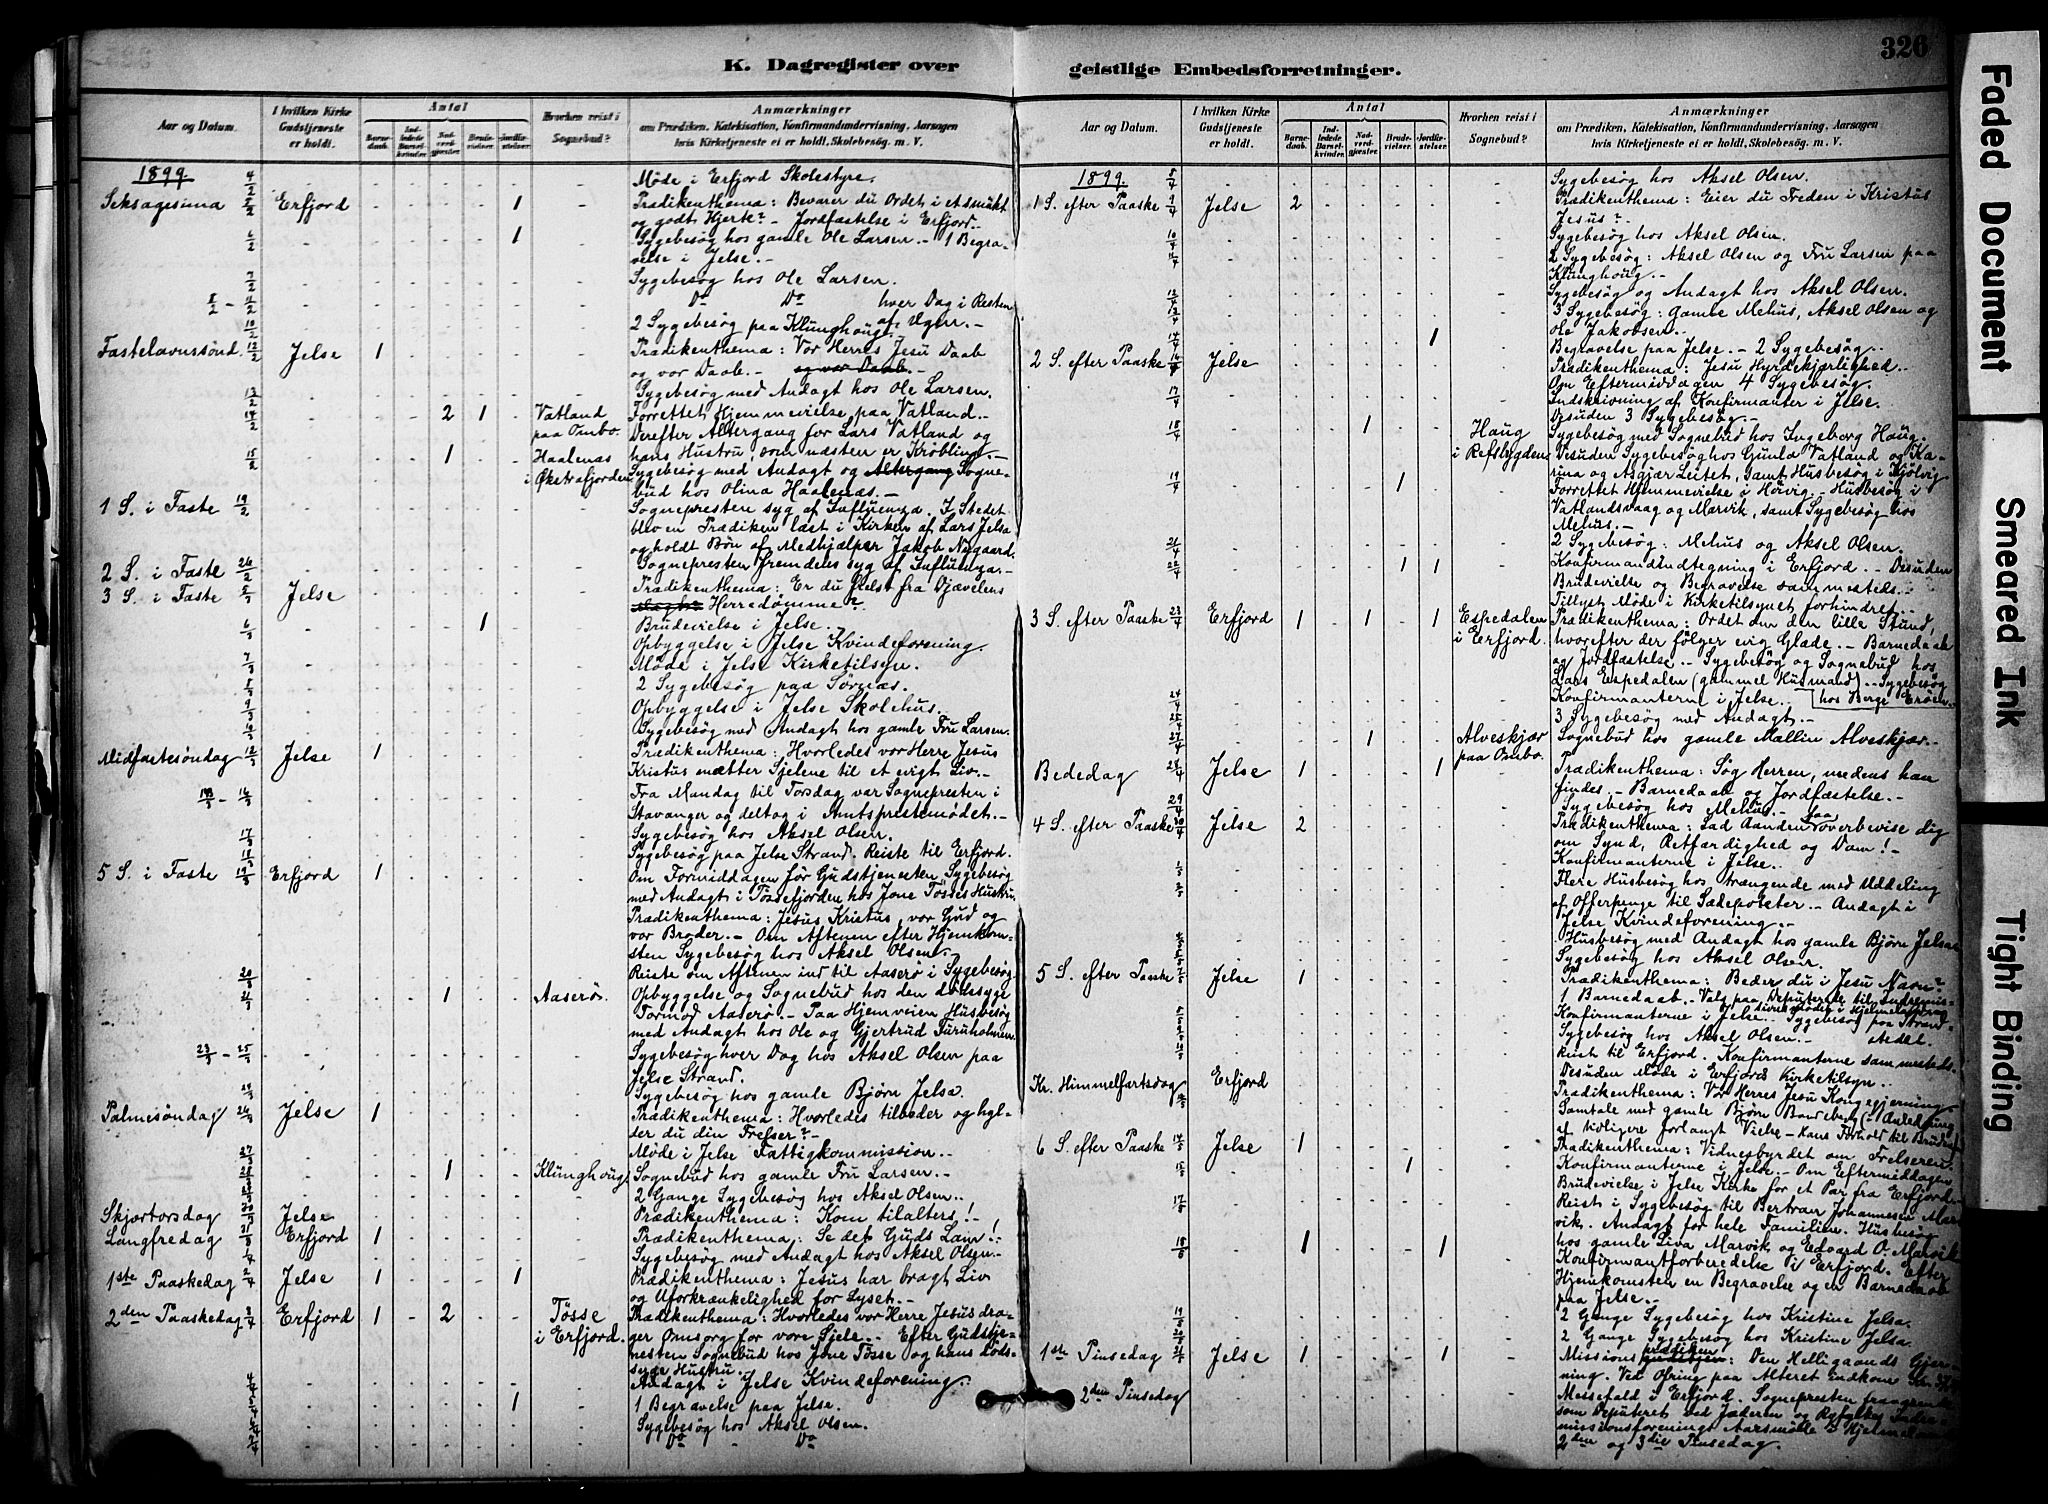 326
K. Dagregister over geistlige Embedsforretninger.
Aar og Datum. I hvilken Kirke Gudstjeneste er holdt. Antal Barnedaab. Indledede Barselkvinder. Nadverdgjæster. Brudevielser. Jordfæstelser. Hvorhen reist i Sognebud? Anmærkninger om Prædiken, Katekisation, Konfirmandundervisning, Aarsagen hvis Kirketjeneste ei er holdt, Skolebesøg. m. V.
1899. 4/2 Møde i Erfjord Skolestyre.
Seksagesima 5/2 Erfjord 1 Prædikenthema: Bevarer du Ordet i et smukt
og godt Hjerte? - Jordfæstelse i Erfjord.
6/2 1 Sygebesøg hos gamle Ole Larsen. - 1 Begra-
velse i Jelse. -
7/2 Sygebesøg hos Ole Larsen.
8/2 - 11/2 Do Do hver Dag i Resten
af Ugen. -
10/2 2 Sygebesøg paa Klunghoug.
Fastelavnssønd. 12/2 Jelse 1 Prædikenthema: Vor Herres Jesu Daab
og vor Daab. - og vor Daab. -
13/2 Sygebesøg med Andagt hos Ole Larsen.
14/2 2 1 Vatland paa Ombo. Forrettet Hjemmevielse paa Vatland.
Derefter Altergang for Lars Vatland og
hans Hustru, som næsten er Krøbling. -
15/2 1 Haalenæs i Økstrafjorden Sygebesøg med Andagt og Altergang Sogne-
bud hos Olina Haalenæs. -
1 S. i Faste 19/2 Sognepresten syg af Influenza. I Stedet
blev en Prædiken læst i Kirken af Lars Jelsa
og holdt Bøn af Medhjælper Jakob Nygaard.
2 S. i Faste 26/2 Sognepresten fremdeles syg af Influenza. -
3 S. i Faste 5/3 Jelse Prædikenthema: Er du frelst fra Djævelens
Herredømme?
6/3 1 Brudevielse i Jelse. -
Opbyggelse i Jelse Kvindeforening.
7/3 Møde i Jelse Kirketilsyn.
8/3 2 Sygebesøg paa Sørnæs.
9/3 Opbyggelse i Jelse Skolehus.
10/3 Sygebesøg med Andagt hos gamle Fru Larsen.
Midfastesøndag 12/3 Jelse 1 Prædikenthema: Hvorledes vor Herre Jesus
Kristus mætter Sjelene til et evigt Liv. -
13/3 - 16/3 Fra Mandag til Torsdag var Sognepresten i
Stavanger og deltog i Amtsprestemødet. -
17/3 Sygebesøg hos Aksel Olsen.
18/3 Sygebesøg paa Jelse Strand. Reiste til Erfjord.
5 S. i Faste 19/3 Erfjord 1 Om Formiddagen før Gudstjenesten Sygebesøg
med Andagt i Tøssefjorden hos Jone Tøsses Hustru.
Prædikenthema: Jesus Kristus, vor Gud og
vor Broder. - Om Aftenen efter Hjemkom-
sten Sygebesøg hos Aksel Olsen. -
20/3 Reiste om Aftenen ind til Aaserø i Sygebesøg.
21/3 1 Aaserø. Opbyggelse og Sognebud hos den dødssyge
Tormod Aaserø. - Paa Hjemveien Husbesøg
med Andagt hos Ole og Gjertrud Furuholmen.
23/3 - 25/3 Sygebesøg hver Dag hos Aksel Olsen paa
Jelse Strand.
Sygebesøg hos gamle Bjørn Jelsa.
Palmesøndag 26/3 Jelse 1 Prædikenthema: Hvorledes tilbeder og hyl-
der du din Frelser? -
27/3 Møde i Jelse Fattigkommission. -
28/3 1 Klunghoug Sognebud hos gamle Fru Larsen. -
2 Gange Sygebesøg hos Aksel Olsen. -
Skjærtorsdag 30/3 Jelse Prædikenthema: Kom tilalters! -
Langfredag 31/3 Erfjord 1 Prædikenthema: Se det Guds Lam! -
1/4 Sygebesøg med Andagt hos Aksel Olsen. -
1ste Paaskedag 2/4 Jelse 1 1 Prædikenthema: Jesus har bragt Liv
og Uforkrænkelighed for Lyset. -
2den Paaskedag 3/4 Erfjord 1 2 Tøsse i Erfjord. Prædikenthema: Hvorledes vor Herre Jesus dra-
ger Omsorg for vore Sjele. - Efter Gudstje-
nesten Sognebud hos Jone Tøsse og hans døds-
syge Hustru.
4/4 Andagt i Jelse Kvindeforening. -
5/4 1 1 Begravelse paa Jelse.
6/4 Sygebesøg hos Aksel Olsen.
7/4 Do Do
Aar og Datum. I hvilken Kirke Gudstjeneste er holdt. Antal Barnedaab. Indledede Barselkvinder. Nadverdgjæster. Brudevielser. Jordfæstelser. Hvorhen reist i Sognebud? Anmærkninger om Prædiken, Katekisation, Konfirmandundervisning, Aarsagen hvis Kirketjeneste ei er holdt, Skolebesøg. m. V.
1899. 8/4 Sygebesøg hos Aksel Olsen.
1 S. efter Paaske 9/4 Jelse 2 Prædikenthema: Eier du Freden i Kristus
Jesus?
10/4 Sygebesøg hos Aksel Olsen.
11/4 2 Sygebesøg: Aksel Olsen og Fru Larsen paa
Klunghoug. -
12/4 Sygebesøg og Andagt hos Aksel Olsen.
13/4 3 Sygebesøg: Gamle Mehus, Aksel Olsen og
Ole Jakobsen. -
14/4 1 Begravelse paa Jelse. - 2 Sygebesøg. -
2 S. efter Paaske 16/4 Jelse Prædikenthema: Jesu Hyrdekjærlighed.
Om Eftermiddagen 4 Sygebesøg.
17/4 Indskrivning af Konfirmanter i Jelse.
Desuden 3 Sygebesøg. -
18/4 1 Haug i Refsbygden Sygebesøg med Sognebud hos Ingeborg Haug.
Desuden Sygebesøg hos Gunla Vatland og Ka-
rina og Asgjær Leitet, samt Husbesøg i Kjølvig
19/4 1 Forrettet Hjemmevielse i Hørvig. - Husbesøg i
Vatlandsvaag og Marvik, samt Sygebesøg hos
Mehus. -
21/4 2 Sygebesøg: Mehus og Aksel Olsen.
22/4 1 1 Konfirmandudtegning i Erfjord. - Desuden
Brudevielse og Begravelse sammesteds. -
Tillyst Møde i Kirketilsynet forhindret. -
3 S. efter Paaske 23/4 Erfjord 1 1 1 Espedalen i Erfjord. Prædikenthema: Ordet om den lille Stund,
hvorefter der følger evig Glæde. - Barnedaab
og Jordfæstelse. - Sygebesøg og Sognebud hos
Lars Espedalen (gammel Husmand). - Sygebesøg
hos Berge Erøen. -
24/4 Konfirmanterne i Jelse.
25/4 3 Sygebesøg med Andagt. -
27/4 1 Alveskjær paa Ombo. Sognebud hos gamle Mallin Alveskjær. -
Bededag 28/4 Jelse 1 1 Prædikenthema: Søg Herren, medens han
findes. - Barnedaab og Jordfæstelse. -
29/4 Sygebesøg hos Mehus. -
4 S. efter Paaske 30/4 Jelse 2 Prædikenthema: Lad Aanden faa overbevise dig
om Synd, Retfærdighed og Dom! -
1/5 Konfirmanterne i Jelse. -
2/5 Flere Husbesøg hos trængende med Uddeling
af Offerpenge til Sædepoteter. - Andagt i
Jelse Kvindeforening. -
4/5 Husbesøg med Andagt hos gamle Bjørn Jelsa
Sygebesøg hos Aksel Olsen.
5 S. efter Paaske 7/5 Jelse 1 Prædikenthema: Beder du i Jesu Navn?
1 Barnedaab. - Valg paa Deputerede til Indremis-
8/5 Konfirmanterne i Jelse. - Sygebesøg paa Strand-
9/5 Sygebesøg hos Aksel Olsen. -
10/5 Reist til Erfjord. Konfirmanterne sammesteds.
Desuden Møde i Erfjords Kirketilsyn. -
Kr. Himmelfartsdag Erfjord Prædikenthema: Vor Herres Jesu Kongegjerning.
Samtale med gamle Bjørn
af tidligere forlangt Vielse - hans Forhold til
6 S. efter Paaske 14/5 Jelse 1 Prædikenthema: Vidnesbyrdet om Frelseren.
15/5 1 Konfirmanterne i Jelse. - Om Eftermiddagen
Brudevielse i Jelse Kirke for et Par fra Erfjord.
17/5 Reist i Sygebesøg til Bertran Johannesen Mar-
vik. Andagt for hele Familien. Husbesøg
hos gamle Liva Marvik og Edvard O. Marvik
18/5 1 1 Konfirmantforberedelse i Erfjord. Efter
Hjemkomsten en Begravelse og en Barnedaab
paa Jelse. -
19/5 2 Gange Sygebesøg hos Kristine Jelsa.
20/5 2 Gange Sygebesøg hos Kristine Jelsa
1ste Pinsedag 21/5 Jelse 1 1 Missions prædiken: Den Helligaands Gjer-
ning. Ved Ofring paa Alteret indkom
2den Pinsedag Messefald i Erfjord. Sognepresten
som Deputeret ved Jæderen og Ryfylkes Indre-
missionsforenings Aarsmøde i Hjelmeland
2den og 3die Pinsedag.
Faded Document
Smeared Ink
Tight Binding